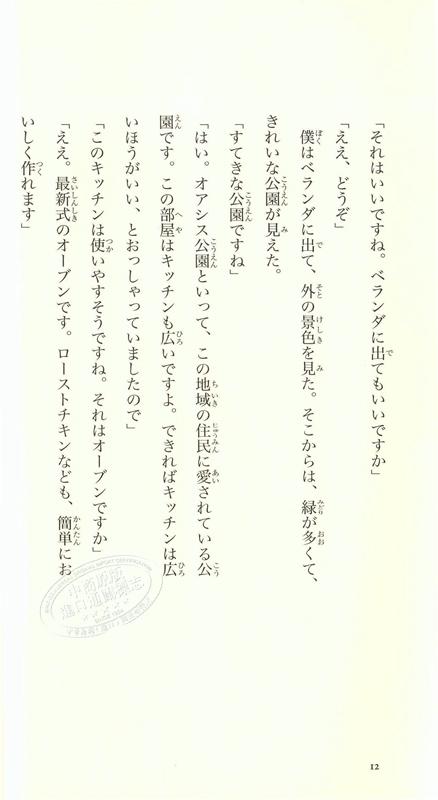 「それはいいですね。ベランダに出てもいいですか」
「ええ、どうぞ」
僕はベランダに出て、外の景色を見た。そこからは、緑が多くて、
きれいな公園が見えた。
「すてきな公園ですね」
「はい。オアシス公園といって、この地域の住民に愛されている公
園です。この部屋はキッチンも広いですよ。できればキッチンは広
いほうがいい、とおっしゃっていましたので」
「このキッチンは使いやすそうですね。それはオーブンですか」
「ええ。最新式のオーブンです。ローストチキンなども、簡単にお
いしく作れます」
12